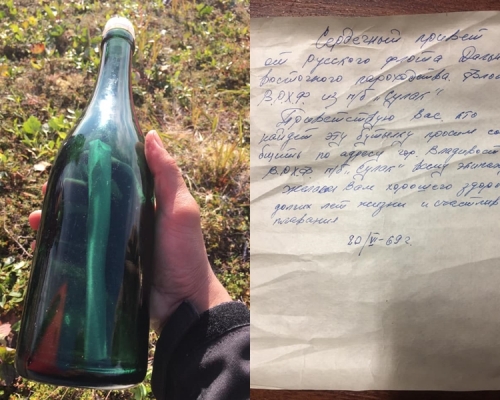 Сердечный привет
от русского флота Дальне
восточного пароходства. Флаг
В.О.Х.Ф из п/б "Сулак"
Приветствую Вас, кто
найдет эту бутылку просим со
бщить по адресу гор. Владивост
В.О.Х.Ф п/б "Сулак" всему экипаж
желаем Вам хорошего здоро
долгих лет жизни и счастлив
плавания
20/VI-69г.